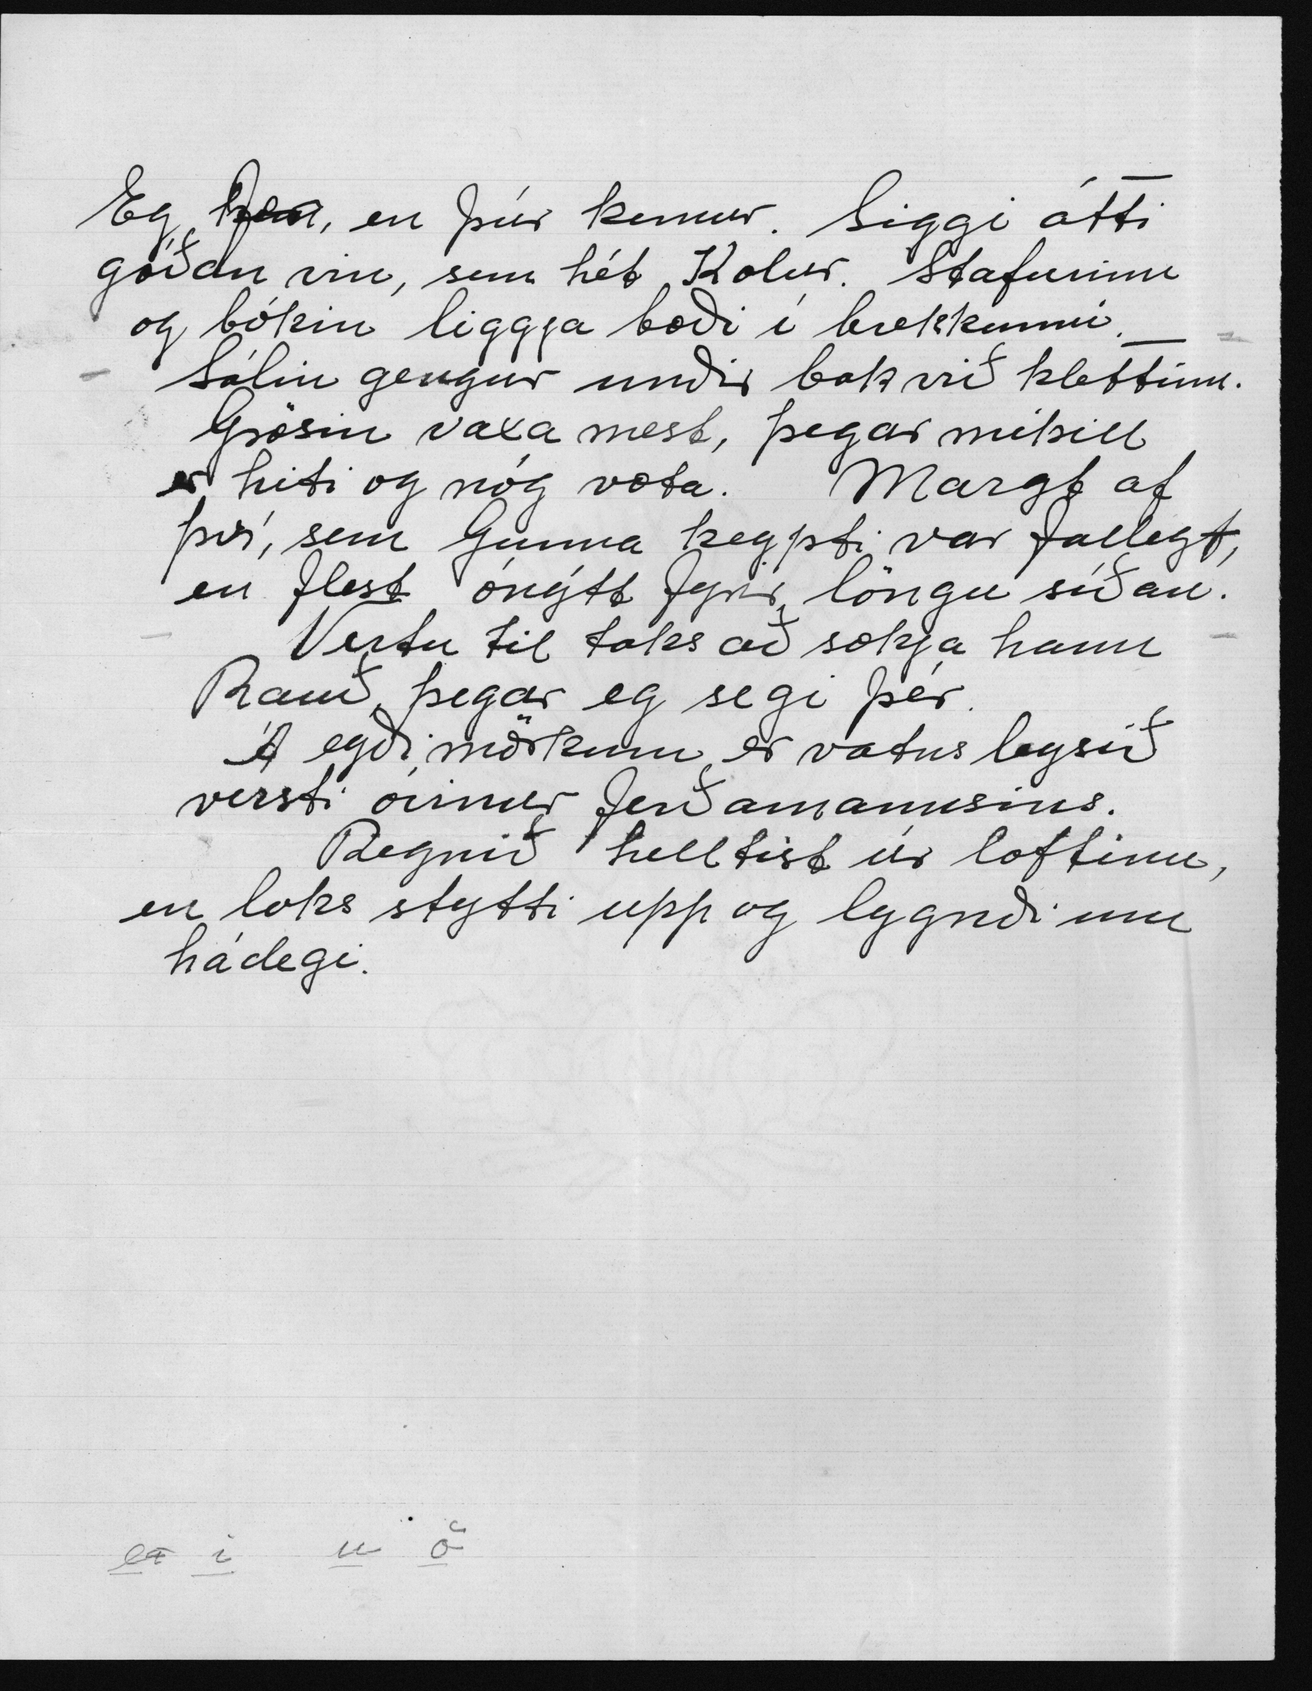 Eg fer, en þú kemur. Siggi átti
góðan vin, sem hét Kolur. Stafurinn
og bókin liggja bæði í brekkunni.
Sólin gengur undir bak við klettinn.
Grösin vaxa mest, þegar mikill
er hiti og nóg væta. Margt af
því, sem Gunna keypti var fallegt,
en flest ónýtt fyrir löngu síðan.
Vertu til taks að sækja hann
Rauð, þegar eg segi þér.
Á eyðimörkum er vatnsleysið
versti óvinur ferðamannsins.
Regnið helltist úr loftinu,
en loks stytti upp og lygndi um
hádegi.
i u ö